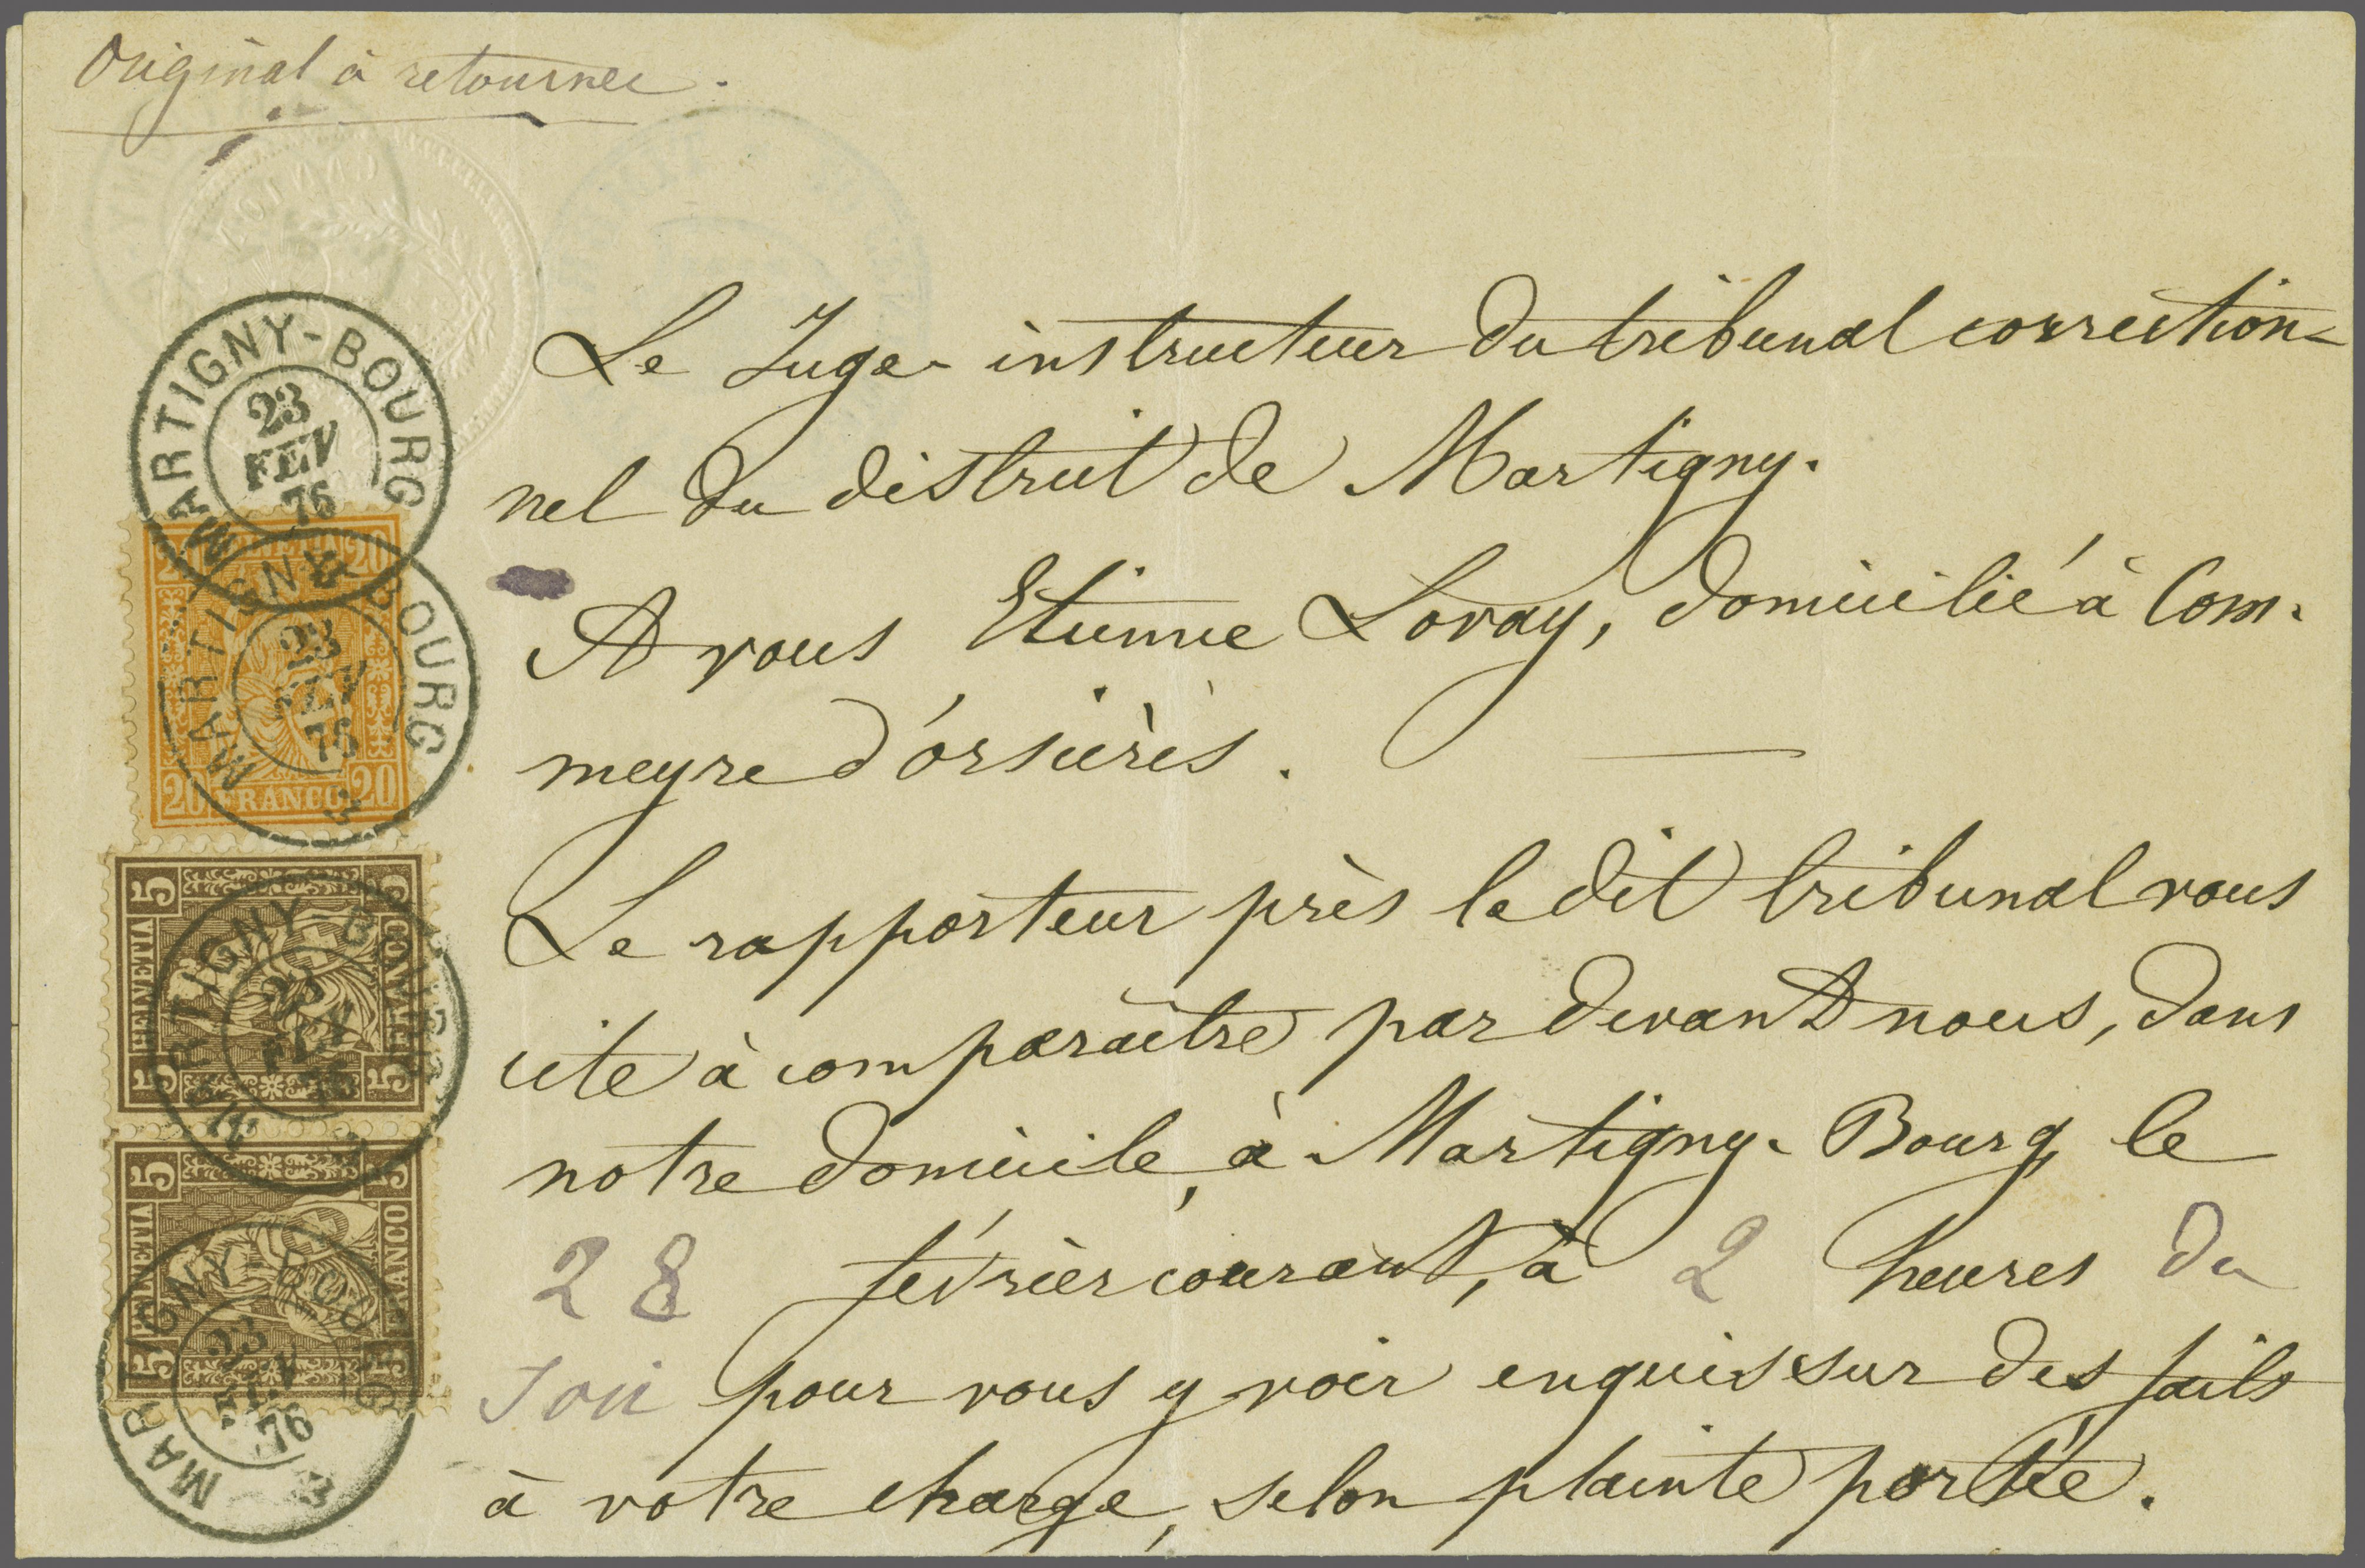 Original à retourner.
MARTIGNY-BOURG
23
FEV
76
20 HELVETIA 20
MARTIGNY-BOURG
23
FEV
76
20 FRANCO 20
5 HELVETIA 5
5 FRANCO 5
MARTIGNY-BOURG
23
FEV
76
5 HELVETIA 5
5 FRANCO 5
MARTIGNY-BOURG
23
FEV
76
Le Juge-instructeur du tribunal correction-
nel du district de Martigny.
A vous Etienne Lovay, domicilié à Com-
meyre d'orsières.
Le rapporteur près le dit tribunal vous
cite à comparaître par devant nous, dans
notre domicile, à Martigny-Bourg le
28 février courant, à 2 heures du
soir pour vous y voir enquis sur des faits
à votre charge, selon plainte portée.